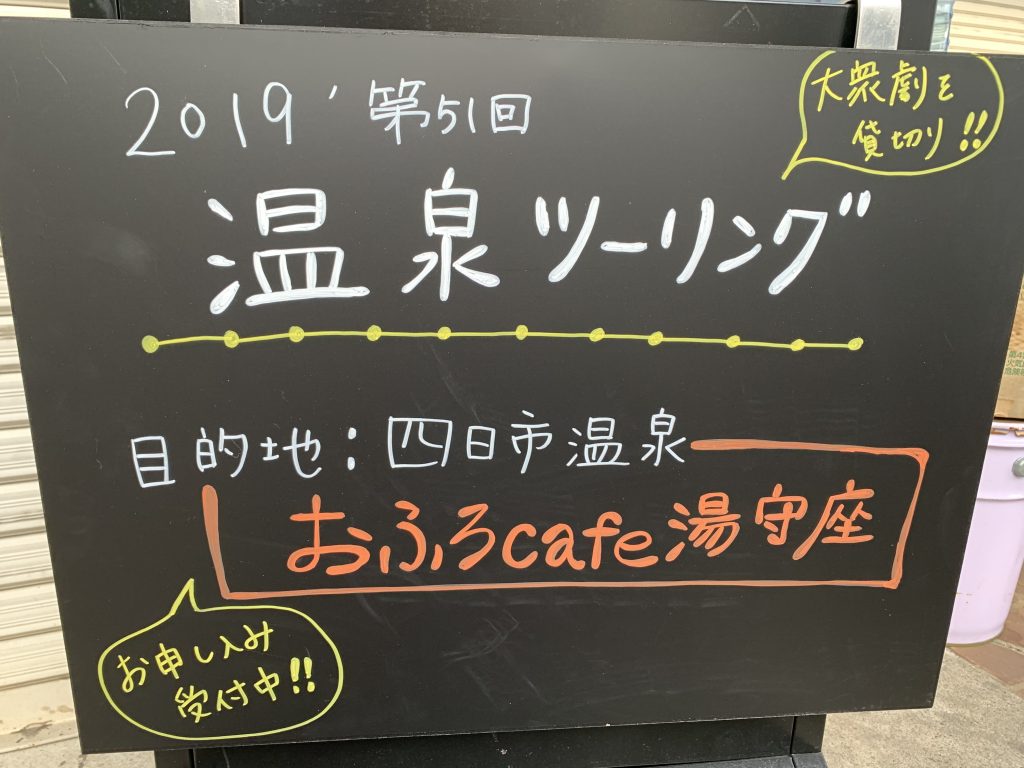 2019' 第51回
大衆劇を
貸切り!!
温泉ツーリング
目的地：四日市温泉
おふろcafe湯守座
お申し込み
受付中!!
第4
火気